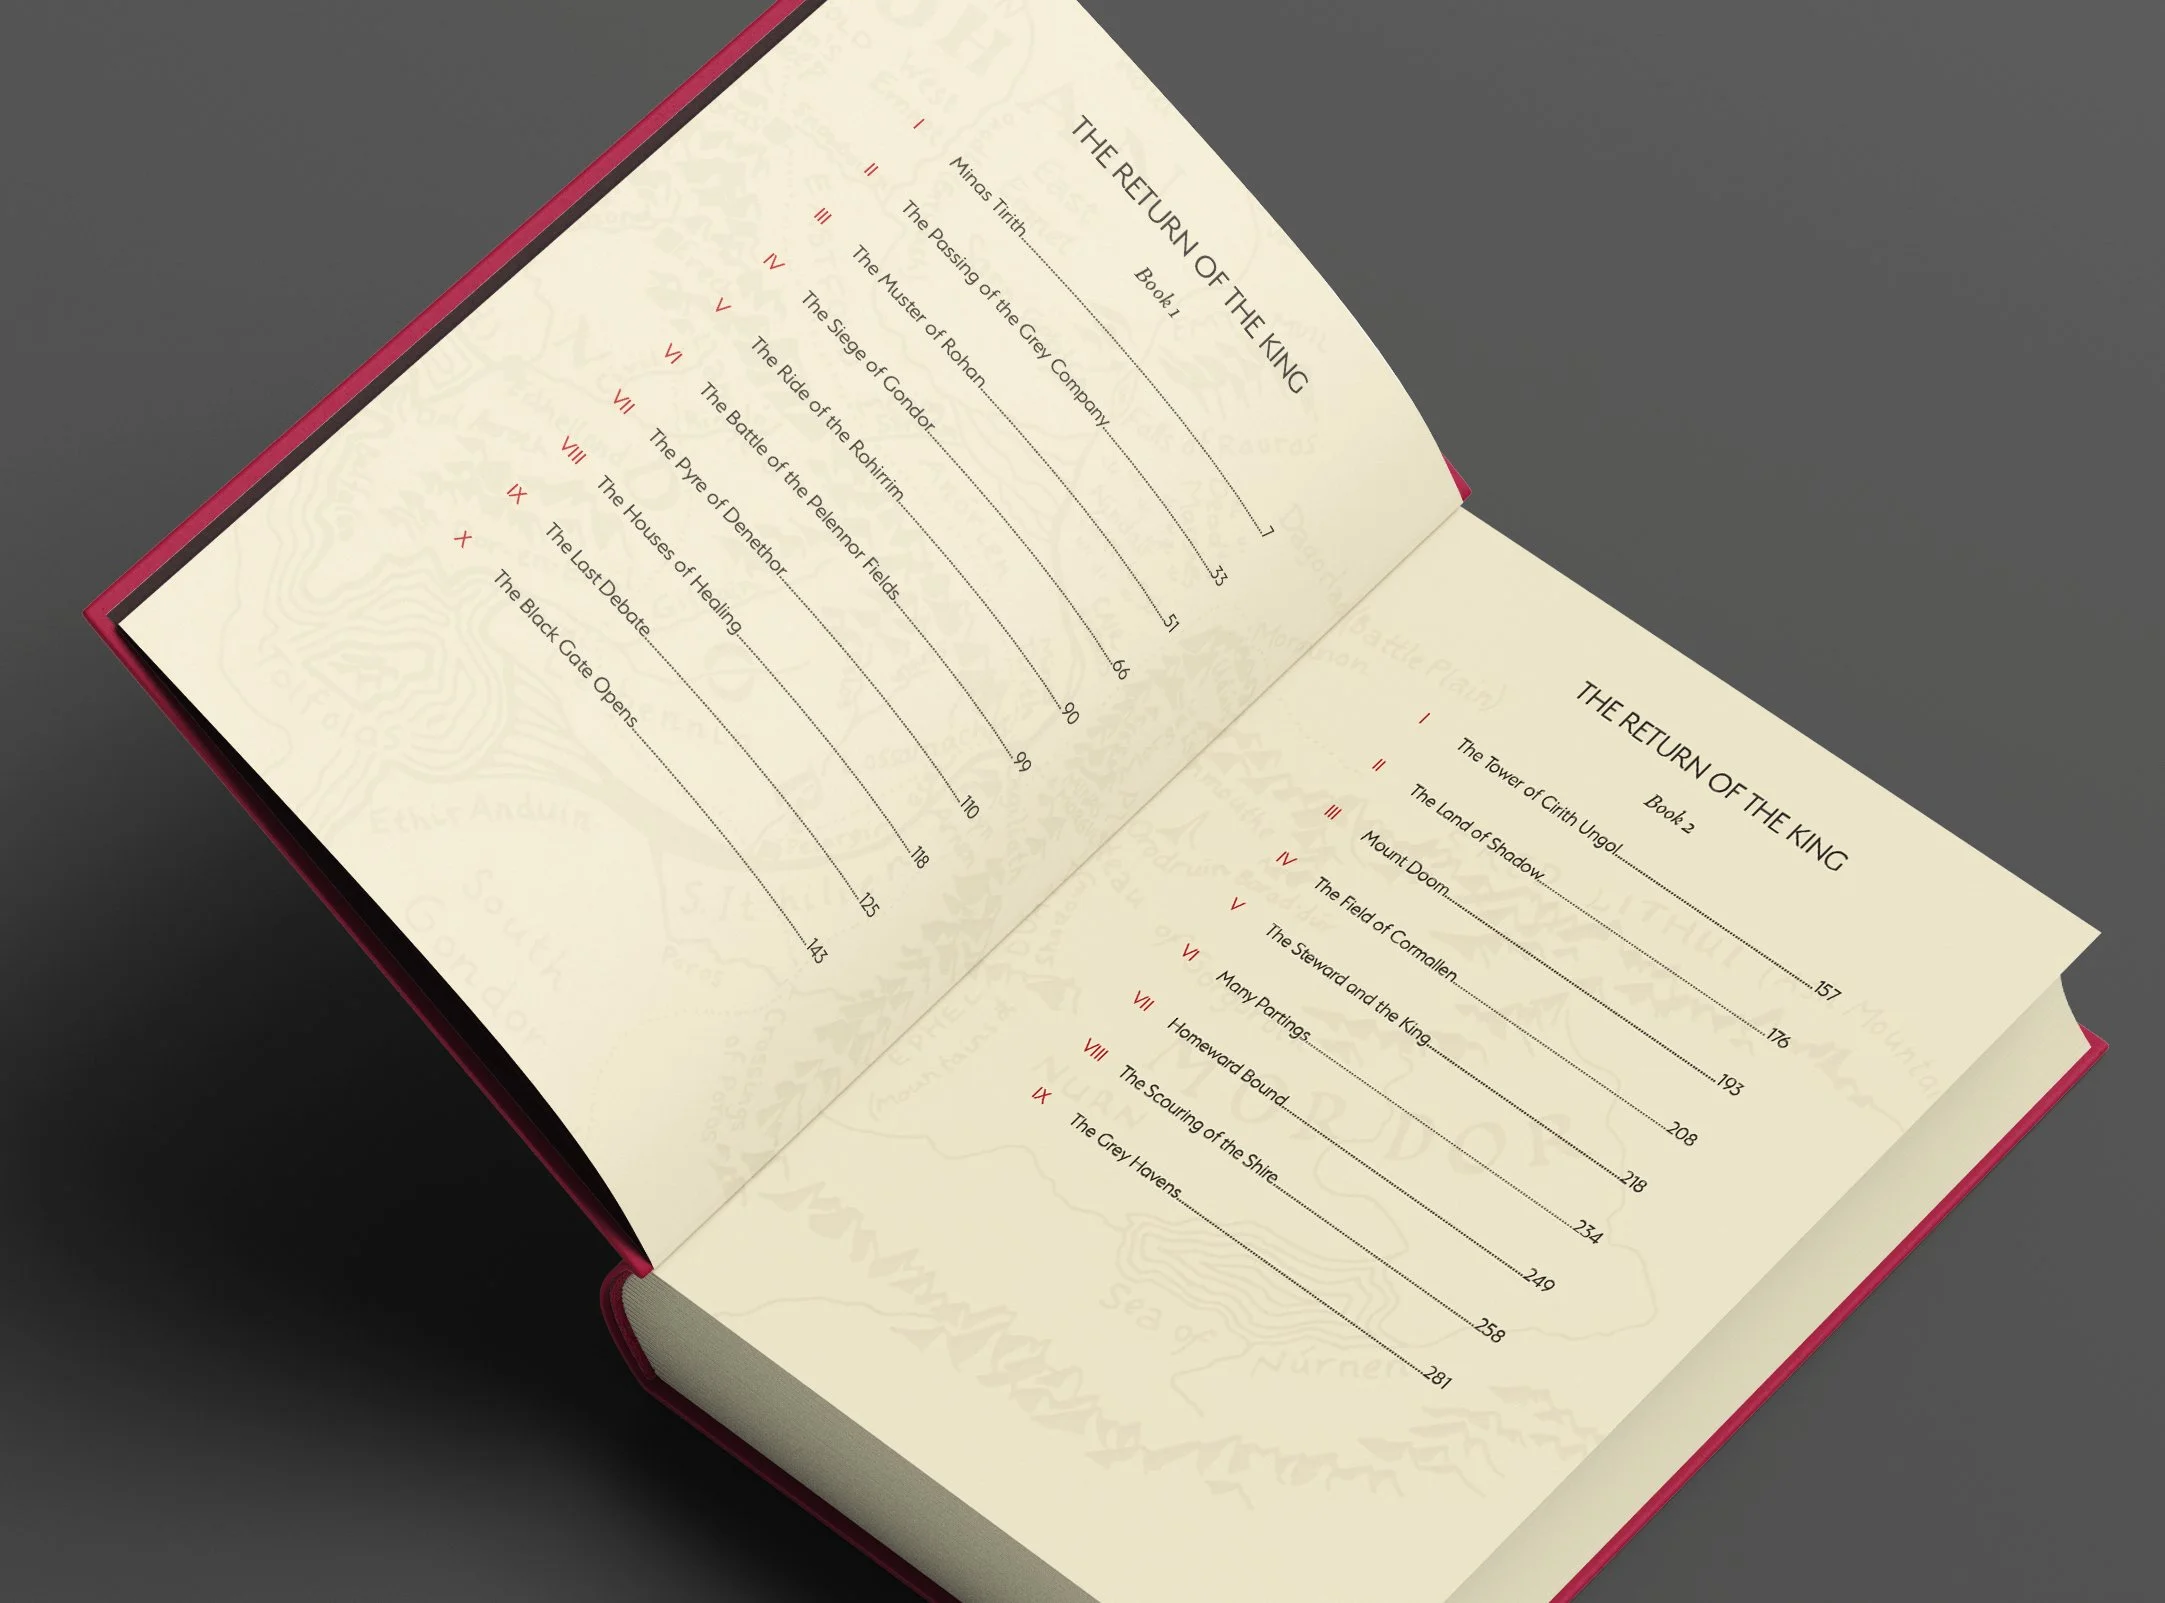 THE RETURN OF THE KING
Book 1
I Minas Tirith 7
II The Passing of the Grey Company 33
III The Muster of Rohan 51
IV The Siege of Gondor 66
V The Ride of the Rohirrim 90
VI The Battle of the Pelennor Fields 99
VII The Pyre of Denethor 110
VIII The Houses of Healing 118
IX The Last Debate 125
X The Black Gate Opens 143
THE RETURN OF THE KING
Book 2
I The Tower of Cirith Ungol 157
II The Land of Shadow 176
III Mount Doom 193
IV The Field of Cormallen 208
V The Steward and the King 218
VI Many Partings 234
VII Homeward Bound 249
VIII The Scouring of the Shire 258
IX The Grey Havens 281
West
East
Falls of Rauros
Ethir Anduin
South
Gondor
Tolfalas
Poros
Crossings
of Poros
(Battle Plain)
NURN
MORDOR
Sea of
Núrnen